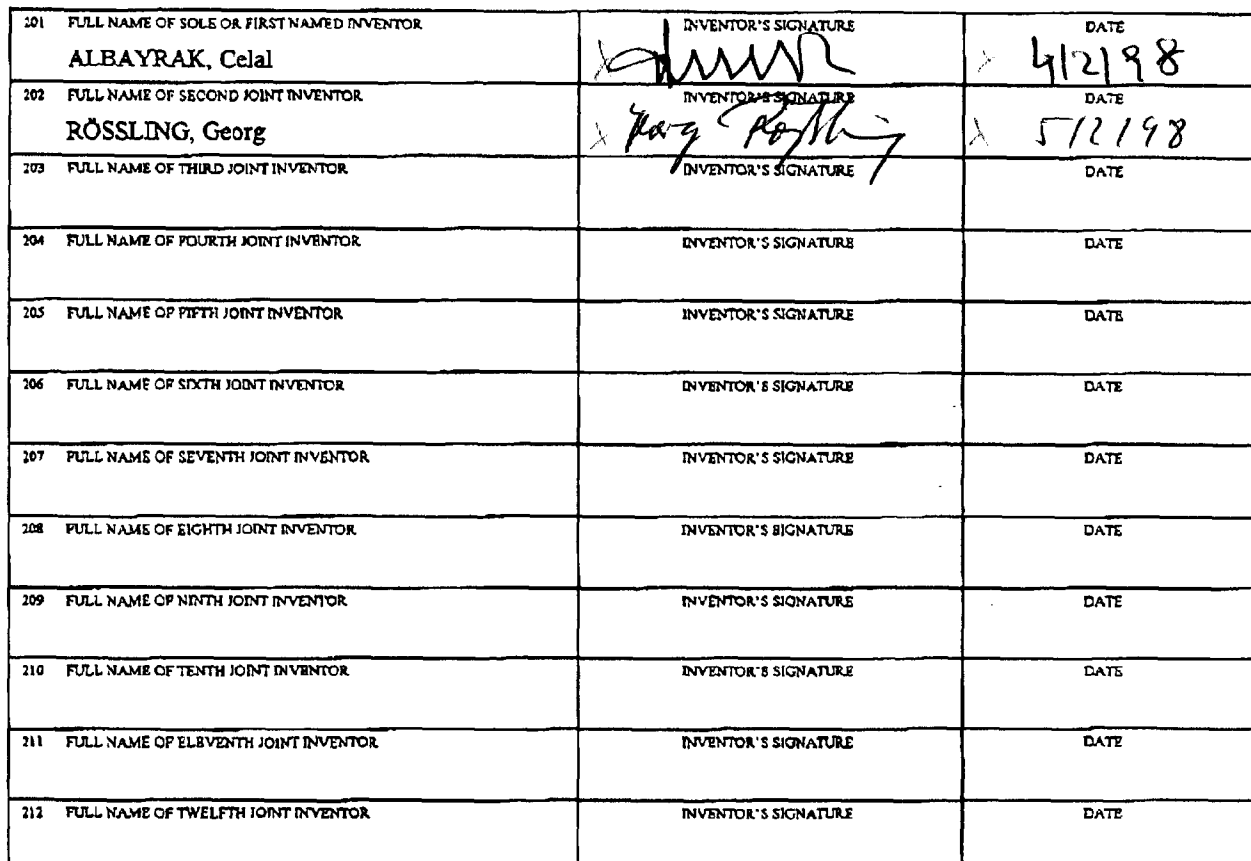 201 FULL NAME OF SOLE OR FIRST NAMED INVENTOR INVENTOR'S SIGNATURE DATE
ALBAYRAK, Celal X X 4/2/98
202 FULL NAME OF SECOND JOINT INVENTOR INVENTOR'S SIGNATURE DATE
RÖSSLING, Georg X Georg Rößling X 5/2/98
203 FULL NAME OF THIRD JOINT INVENTOR INVENTOR'S SIGNATURE DATE
204 FULL NAME OF FOURTH JOINT INVENTOR INVENTOR'S SIGNATURE DATE
205 FULL NAME OF FIFTH JOINT INVENTOR INVENTOR'S SIGNATURE DATE
206 FULL NAME OF SIXTH JOINT INVENTOR INVENTOR'S SIGNATURE DATE
207 FULL NAME OF SEVENTH JOINT INVENTOR INVENTOR'S SIGNATURE DATE
208 FULL NAME OF EIGHTH JOINT INVENTOR INVENTOR'S SIGNATURE DATE
209 FULL NAME OF NINTH JOINT INVENTOR INVENTOR'S SIGNATURE DATE
210 FULL NAME OF TENTH JOINT INVENTOR INVENTOR'S SIGNATURE DATE
211 FULL NAME OF ELEVENTH JOINT INVENTOR INVENTOR'S SIGNATURE DATE
212 FULL NAME OF TWELFTH JOINT INVENTOR INVENTOR'S SIGNATURE DATE